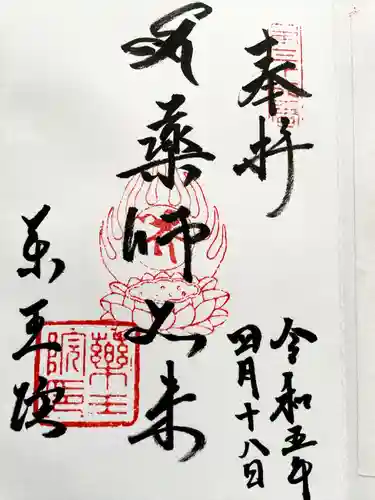 奉拝
令和五年
四月十八日
薬師如来
薬王院
薬王院印